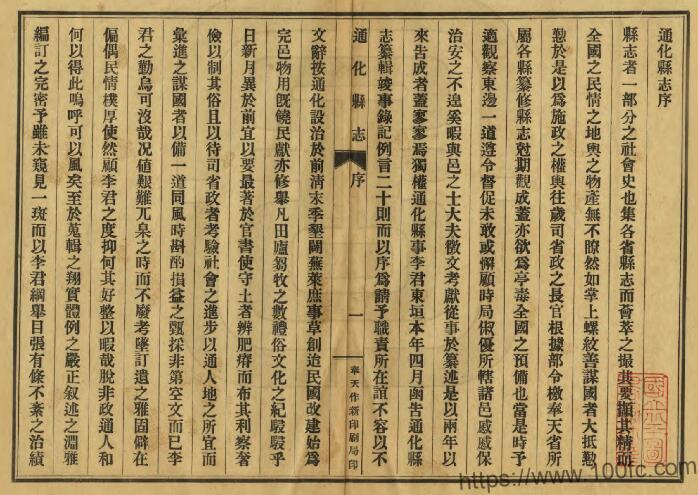 通化縣志序
縣志者一部分之社會史也集各省縣志而薈萃之撮其要顯其精而
全國之民情之地輿之物產無不瞭然如掌上螺紋善謀國者大抵懃
懃於是以爲施政之權輿往歲司省政之長官根據部令檄奉天省所
屬各縣纂修縣志尅期觀成蓋亦欲爲亭毒全國之預備也當是時予
適觀察東邊一道遵令督促未敢或懈顧時局俶優所轄諸邑戚戚保
治安之不遑奚暇與邑之士大夫徵文考獻從事於纂述是以兩年以
來告成者蓋寥寥焉獨權通化縣事李君東垣本年四月函告通化縣
志纂輯竣事錄記例言二十則而以序爲請予職責所在誼不容以不
文辭按通化設治於前淸末季墾闢蕪萊庶事草創造民國改建始爲
完邑物用旣饒民獻亦修舉凡田廬芻牧之數禮俗文化之紀駸駸乎
日新月異於前宜以要最著於官書使守土者辨肥瘠而布其利察奢
儉以制其俗且以待司省政者考驗社會之進步以通人地之所宜而
彙進之謀國者以備一道同風時斟酌損益之甄採非第空文而已李
君之勤烏可沒哉况値艱難兀臬之時而不廢考墜訂遺之雅固僻在
偏偶民情樸厚使然顧李君之度抑何其好整以暇哉脫非政通人和
何以得此嗚呼可以風矣至於蒐輯之翔實體例之嚴正叙述之淵雅
編訂之完密予雖未窺見一斑而以李君綱舉目張有條不紊之治績
通化縣志 序 一 奉天作新印刷局印
https://www.100fc.com